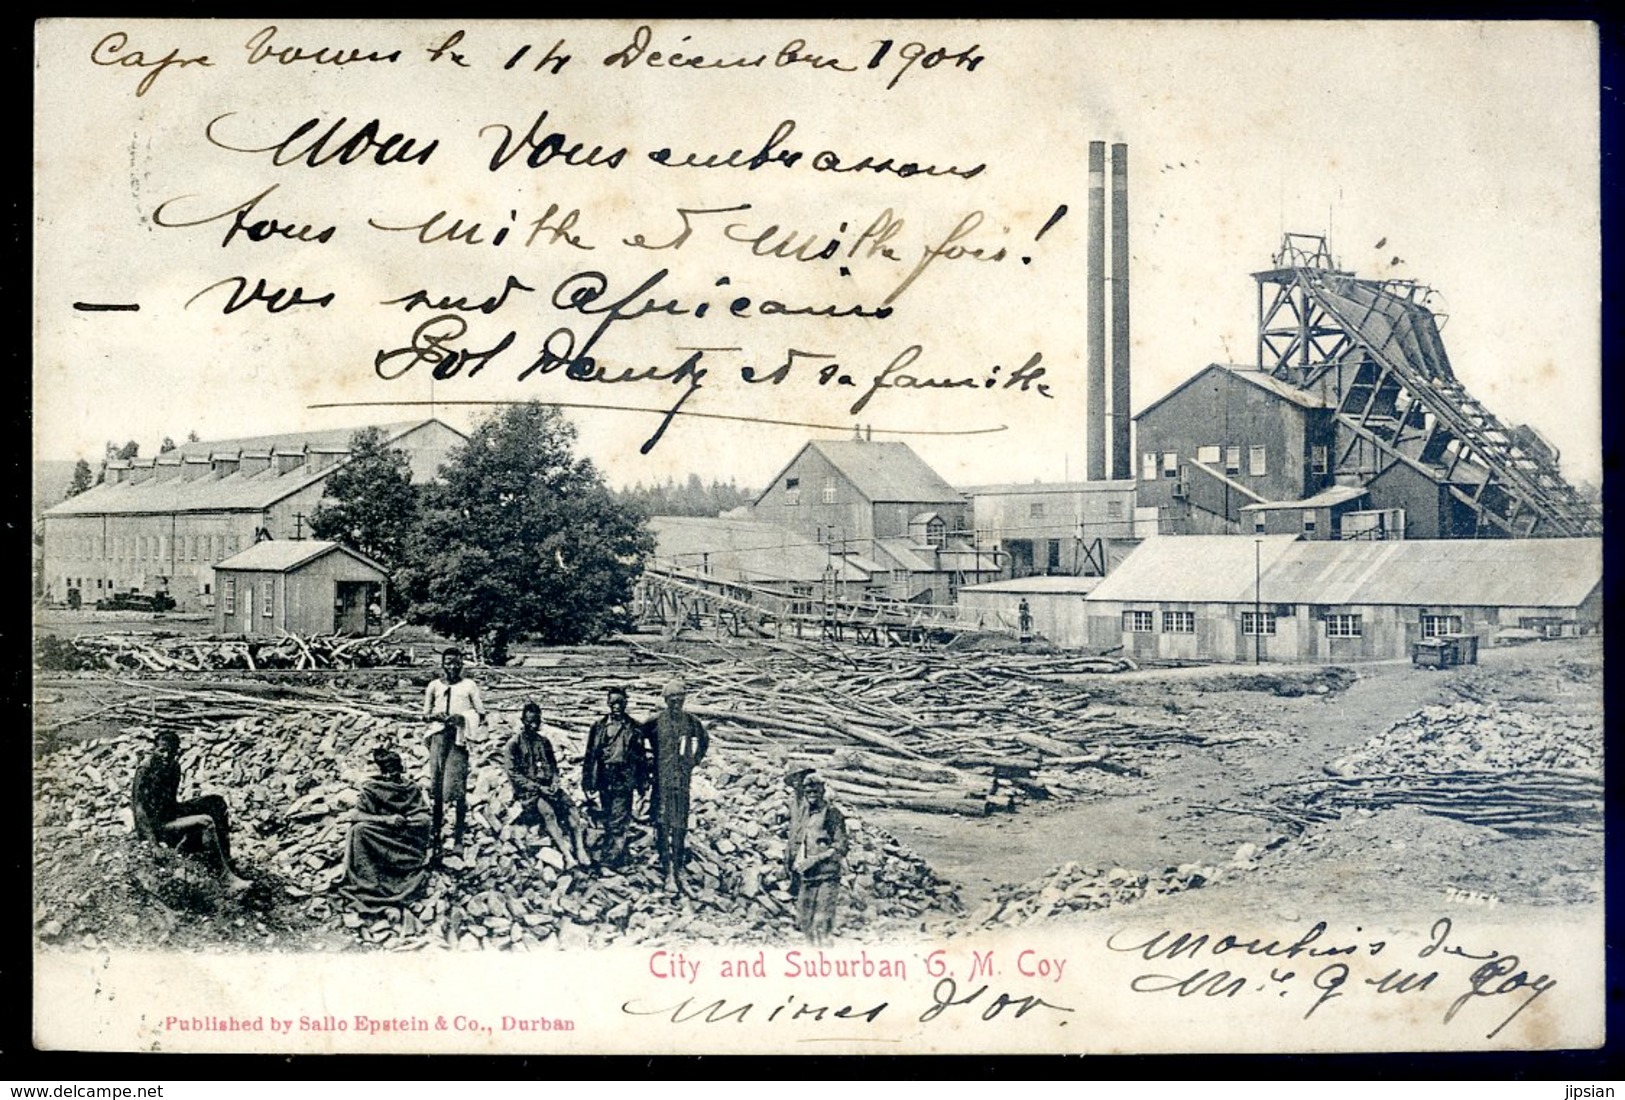 Cape Town le 14 Décembre 1904
Nous Vous embrassons
tous mille et mille fois!
— vos sud Africains
et sa famille
City and Suburban G. M. Coy
Moulins du
Mr. G M Coy
Mines d'or.
Published by Sallo Epstein & Co., Durban
www.delcampe.net
jipsian